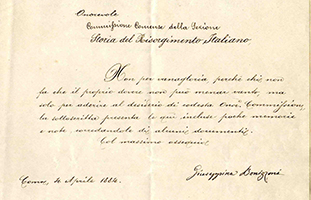 Onorevole
Commissione Comense della Sezione
Storia del Risorgimento Italiano
Non per vanagloria perché chi non
fa che il proprio dovere non può menar vanto, ma
solo per aderire al desiderio di codesta Onor. Commissione,
la sottoscritta presenta le qui incluse poche memorie
e note corredandole di alcuni documenti.
Col massimo ossequio.
Como, 4 Aprile 1884.
Giuseppina Bonizzoni